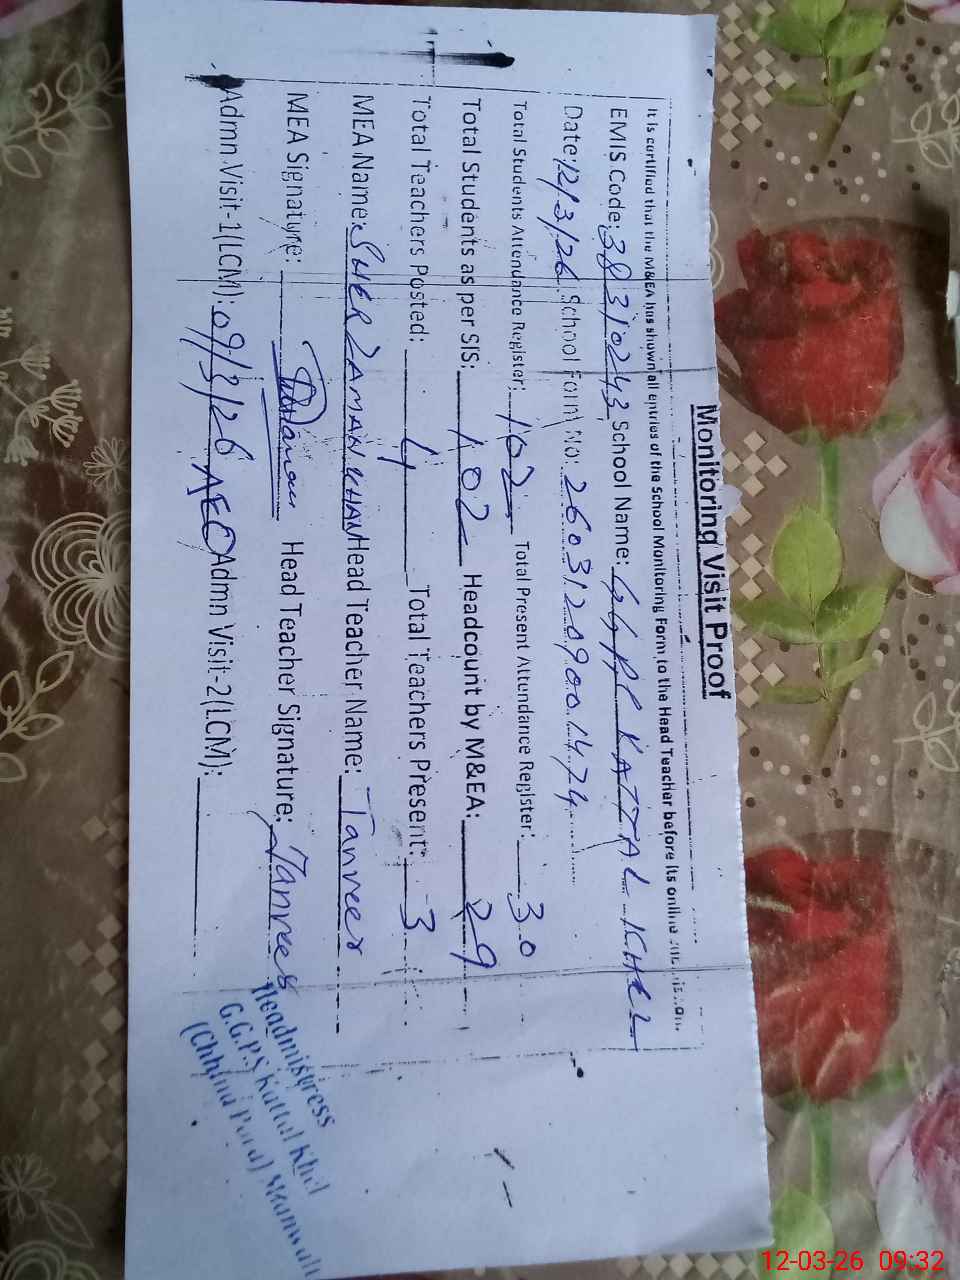 Monitoring Visit Proof
It is certified that the M&EA has shown all entries of the School Monitoring Form to the Head Teacher before its online submission.
EMIS Code: 38310243 School Name: GGPS KATTAL KHEL
Date: 12/3/26 School Form No: 26031209001474
Total Students Attendance Register: 102 Total Present Attendance Register: 30
Total Students as per SIS: 102 Headcount by M&EA: 29
Total Teachers Posted: 4 Total Teachers Present: 3
MEA Name: SHER ZAMAN KHAN Head Teacher Name: Tanveer
MEA Signature: Head Teacher Signature: Tanveer
Admn Visit-1(LCM): 09/3/26 AEO Admn Visit-2(LCM):
Headmistress
G.G.P.S Kattal Khel
(Chhina Pora) Mianwali
12-03-26 09:32